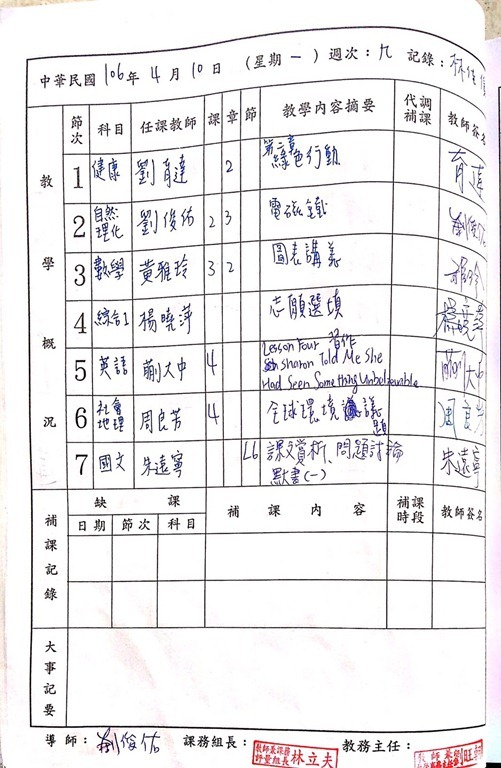 中華民國 106 年 4 月 10 日 (星期 一) 週次：九 記錄：林
教學概況 節次 科目 任課教師 課 章 節 教學內容摘要 代調補課 教師簽名
1 健康 劉育達 2 第二章 綠色行動 育達
2 自然 理化 劉俊佑 2 3 劉俊佑
3 數學 黃雅玲 3 2 圖表講義
4 綜合 楊曉萍 志願選填 楊曉萍
5 英語 蒯大中 4 Lesson Four 習作
Sharon Told Me She
Had Seen Something Unbelievable 蒯大中
6 社會 地理 周良芳 4 全球環境議題 周良芳
7 國文 朱遠寧 L6 課文賞析、問題討論
默書(一) 朱遠寧
補課記錄 缺課 補課內容 補課時段 教師簽名
日期 節次 科目
大事記要
導師：劉俊佑 課務組長：教師兼課務評量組長 林立夫 教務主任：教師兼